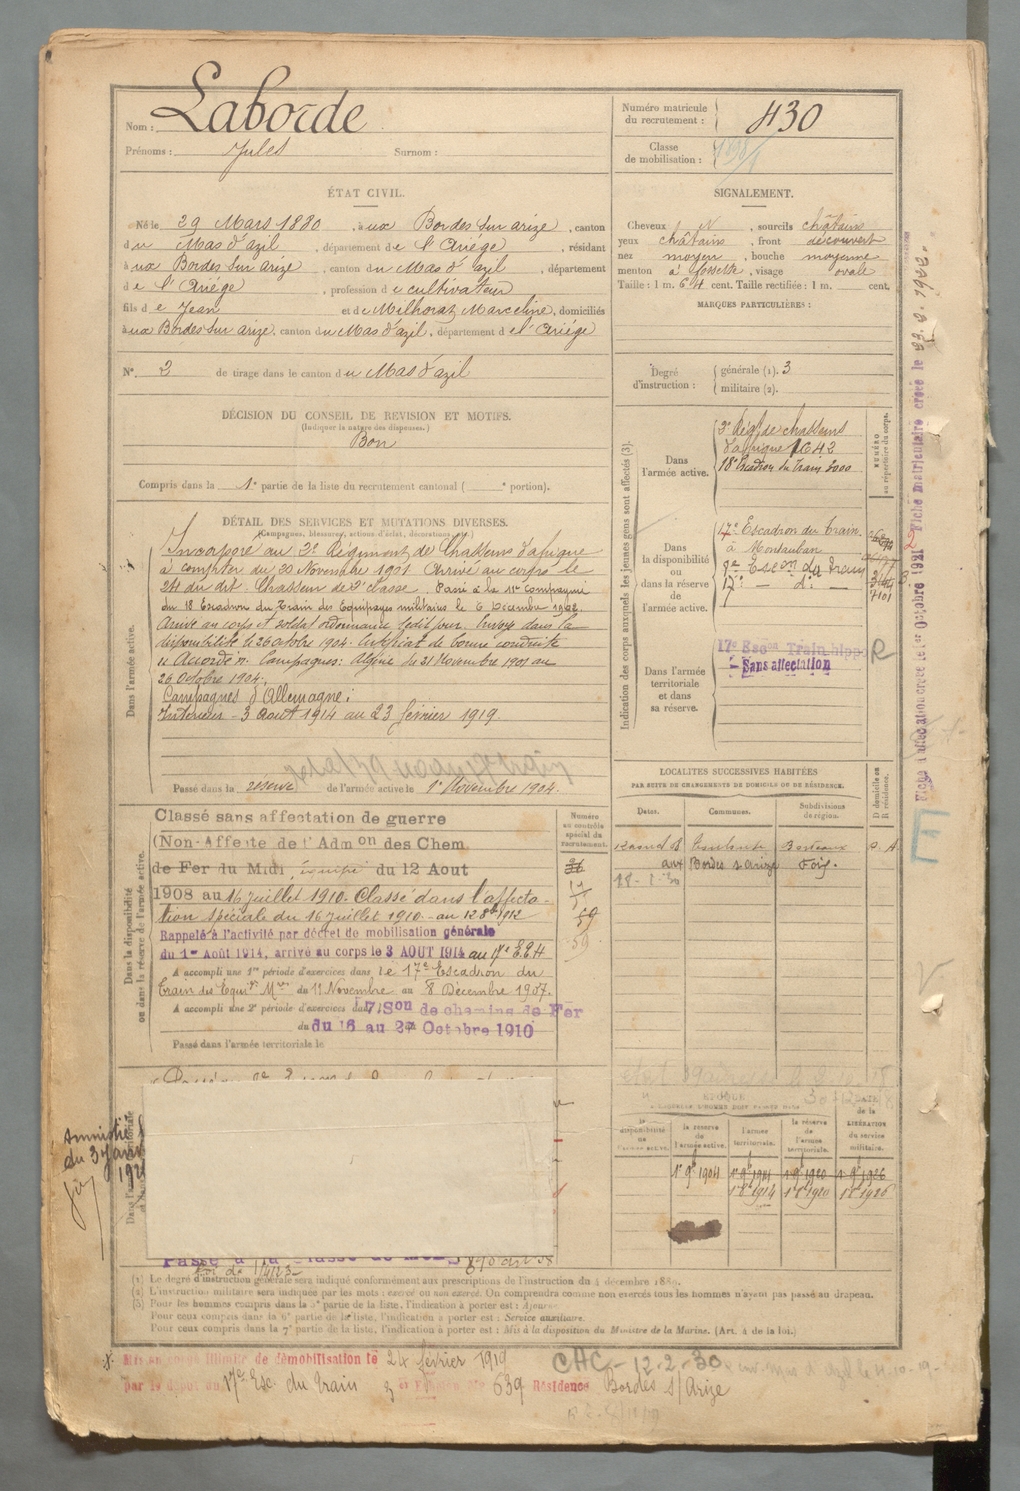 Nom : Laborde
Prénoms : Jules Surnom :
Numéro matricule du recrutement : 430
Classe de mobilisation : 1898/1
ÉTAT CIVIL.
Né le 29 Mars 1880, à ux Bordes sur arize, canton
du Mas d'azil, département de l'Ariége, résidant
à ux Bordes sur arize, canton du Mas d'azil, département
de l'Ariége, profession de cultivateur
fils de Jean et de Milhorat Marceline, domiciliés
à ux Bordes sur arize, canton du Mas d'azil, département de l'Ariége
N° 2 de tirage dans le canton du Mas d'azil
SIGNALEMENT.
Cheveux N, sourcils châtains
yeux châtains, front découvert
nez moyen, bouche moyenne
menton à fossette, visage ovale
Taille : 1 m. 64 cent. Taille rectifiée : 1 m. cent.
MARQUES PARTICULIÈRES :
Degré d'instruction : générale (1). 3
militaire (2).
DÉCISION DU CONSEIL DE REVISION ET MOTIFS.
(Indiquer la nature des dispenses.)
Bon
Compris dans la 1e partie de la liste du recrutement cantonal ( e portion).
DÉTAIL DES SERVICES ET MUTATIONS DIVERSES.
(Campagnes, blessures, actions d'éclat, décorations, etc.)
Dans l'armée active.
Incorporé au 3e Régiment de Chasseurs d'afrique
à compter du 20 Novembre 1901 Arrivé au corps le
24 du dit. Chasseur de 2e classe. Passé à la 11e Compagnie
du 18 Escadron du Train des Equipages militaires le 6 Décembre 1902.
Arrivé au corps et soldat ordonnance ledit jour. Envoyé dans la
disponibilité le 26 octobre 1904. Certificat de bonne conduite
"Accordé". Campagnes: Algérie du 21 Novembre 1901 au
26 Octobre 1904.
Campagnes d'Allemagne :
Intérieur - 3 août 1914 au 23 février 1919.
Passé dans la réserve de l'armée active le 1er Novembre 1904.
Indication des corps auxquels les jeunes gens sont affectés (3).
NUMÉRO au répertoire du corps.
Dans l'armée active.
3e Rég de chasseurs
d'afrique 1642
18e Escadron du Train 6000
Dans la disponibilité ou dans la réserve de l'armée active.
17e Escadron du Train
à Montauban
9e Escon du Train
17e — do —
7101
Dans l'armée territoriale et dans sa réserve.
17e Escon Train hippo R
Sans affectation
Dans la disponibilité ou dans la réserve de l'armée active.
Numéro au contrôle spécial du recrutement.
Classé sans affectation de guerre
(Non-Affecté de l'Admon des Chem
de Fer du Midi, équipé du 12 Aout
1908 au 16 juillet 1910. Classé dans l'affecta-
tion spéciale du 16 juillet 1910 - au 12 8bre 1912
Rappelé à l'activité par décret de mobilisation générale
du 1er Août 1914, arrivé au corps le 3 AOUT 1914 au 17e E.E.M
A accompli une 1re période d'exercices dans le 17e Escadron du
Train des Equip. Mres du 11 Novembre au 8 Décembre 1907.
A accompli une 2e période d'exercices dans 7 Son de chemins de Fer
du du 16 au 24 Octobre 1910
Passé dans l'armée territoriale le
59
LOCALITÉS SUCCESSIVES HABITÉES
PAR SUITE DE CHANGEMENTS DE DOMICILE OU DE RÉSIDENCE.
Dates. Communes. Subdivisions de région. D domicile ou R résidence.
12 aout 08 Bordeaux R.
aux Bordes s Arize Foix.
12-2-30
ÉPOQUE
la disponibilité de l'armée active.
la réserve de l'armée active.
l'armée territoriale.
la réserve de l'armée territoriale.
DATE de la LIBÉRATION du service militaire.
1er 9bre 1904 1er 9bre 1911 1er 9 1920 1er 9bre 1926
1er 8 1914 1 8 1920 1er 8 1926
Amnistié
du 3 Janv
Passé à la classe de mob
Loi du 1/4/23
(1) Le degré d'instruction générale sera indiqué conformément aux prescriptions de l'instruction du 4 décembre 1889.
(2) L'instruction militaire sera indiquée par les mots : exercé ou non exercé. On comprendra comme non exercés tous les hommes n'ayant pas passé au drapeau.
(3) Pour les hommes compris dans la 5e partie de la liste, l'indication à porter est : Ajourné
Pour ceux compris dans la 6e partie de la liste, l'indication à porter est : Service auxiliaire.
Pour ceux compris dans la 7e partie de la liste, l'indication à porter est : Mis à la disposition du Ministre de la Marine. (Art. 4 de la loi.)
Mis en congé illimité de démobilisation le 24 février 1919
par le dépôt du 17e Esc. du Train 3e Echelon No 639 Résidence Bordes s/Arize
CAC - 12-2-30
Fiche d'affectation créée le 1er Octobre 1921
Fiche matriculaire créée le